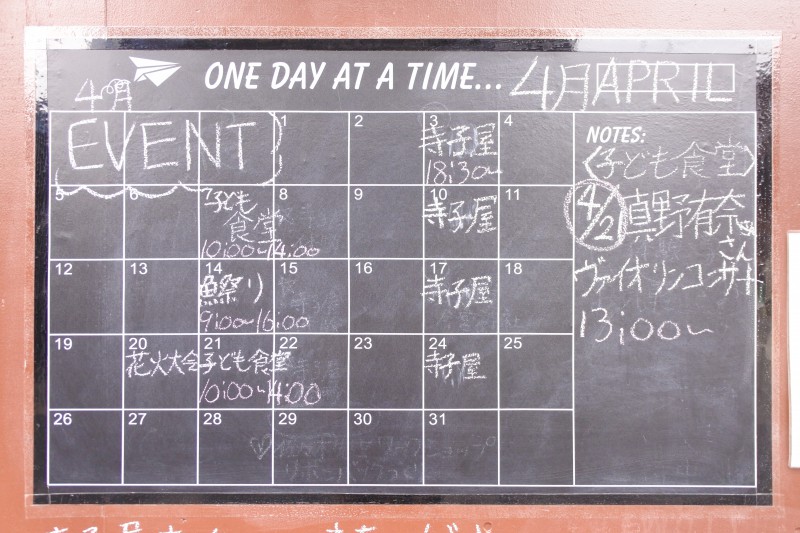 ONE DAY AT A TIME...
4月
4月 APRIL
EVENT
1
2
3
寺子屋
18:30~
4
5
6
7
子ども
食堂
10:00~14:00
8
9
10
寺子屋
11
12
13
14
魚祭り
9:00~16:00
15
16
17
寺子屋
18
19
20
花火大会
21
子ども食堂
10:00~14:00
22
23
24
寺子屋
25
26
27
28
29
30
31
NOTES:
〈子ども食堂〉
4/2 真野有奈
さん
ヴァイオリンコンサート
13:00~